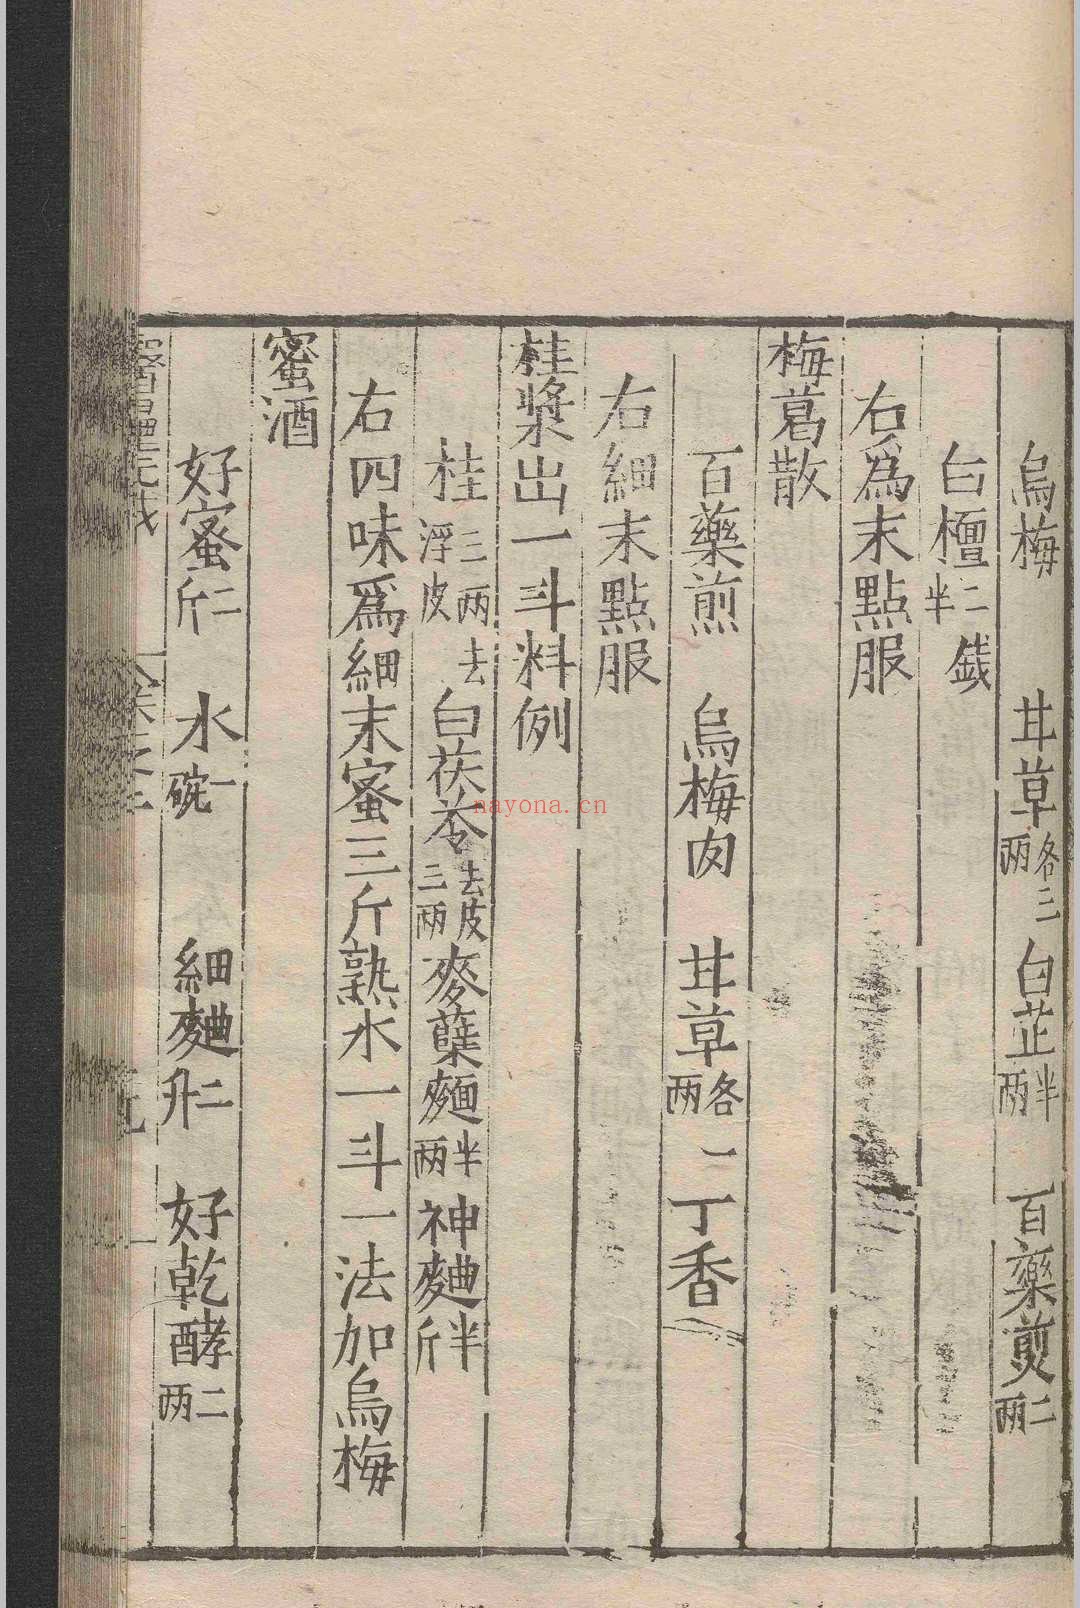 烏梅　甘草各三兩　白芷半兩　百藥煎二兩
白檀二錢半
右爲末點服
梅葛散
百藥煎　烏梅肉　甘草各一兩　丁香
右細末點服
桂漿出一斗料例
桂三兩去浮皮　白茯苓去皮三兩　麥蘖麵半兩　神麯半斤
右四味爲細末蜜三斤熟水一斗一法加烏梅
蜜酒
好蜜二斤　水一碗　細麯二升　好乾酵二兩
nayona.cn